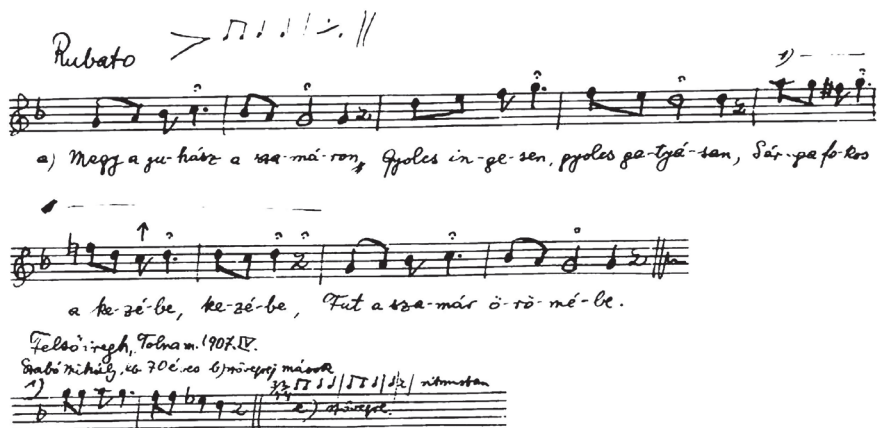 Rubato
1)
a) Megy a ju-hász a sza-má-ron, Gyolcs in-ge-sen, gyolcs ga-tyá-san, Sár-ga fo-kos
a ke-zé-be, ke-zé-be, Fut a sza-már ö-rö-mé-be.
Felsőiregh, Tolna m. 1907. IV.
Szabó Mihály, kb 70 é.es b) szövegej mások
1) ritmusban